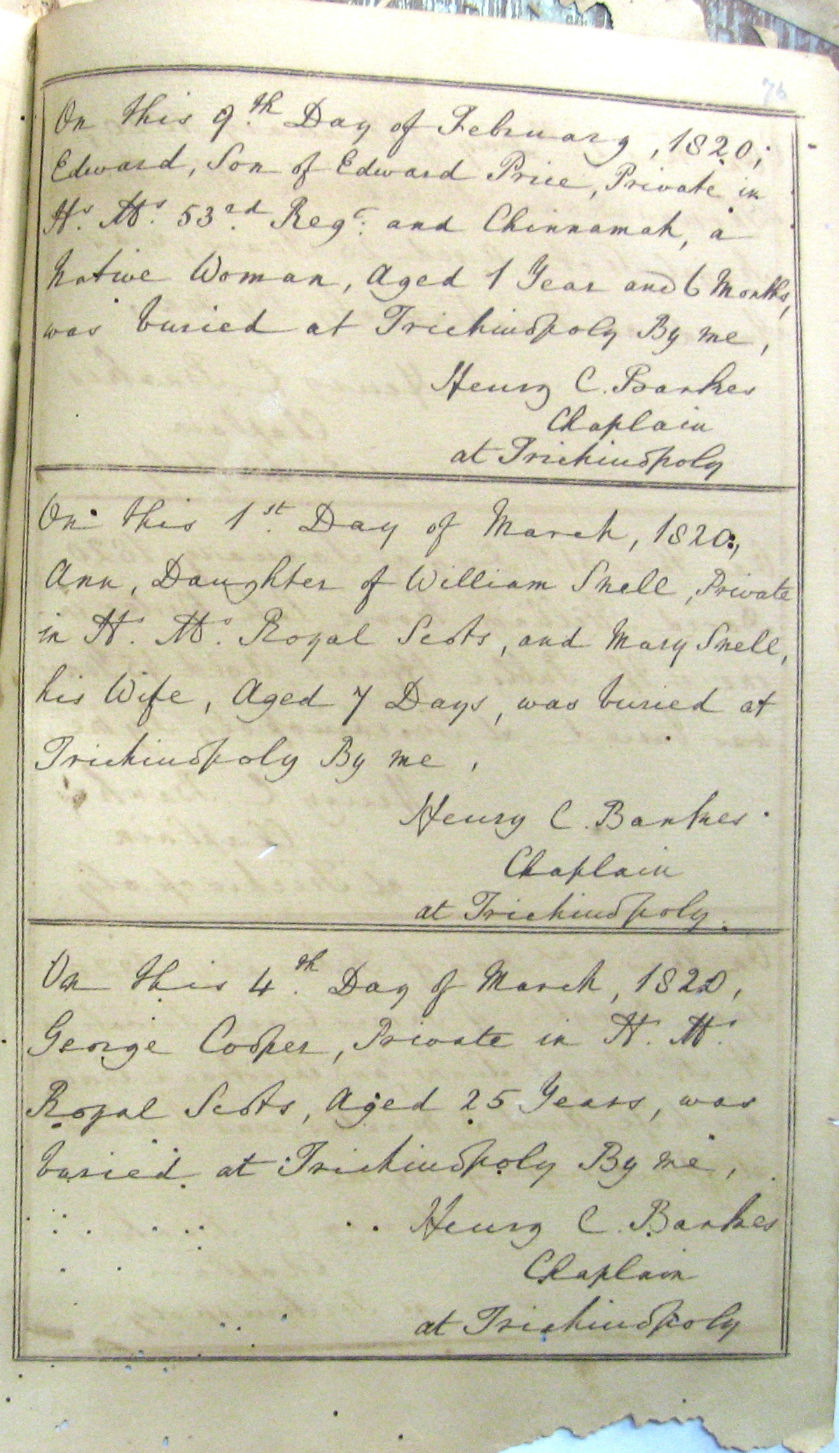 76
On this 9th Day of February, 1820,
Edward, Son of Edward Price, Private in
H.s M.s 53rd Regt. and Chinnamah, a
Native Woman, Aged 1 Year and 6 Months,
was buried at Trichinopoly By me,
Henry C. Bankes
Chaplain
at Trichinopoly
On this 1st Day of March, 1820,
Ann, Daughter of William Snell, Private
in H.s M.s Royal Scots, and Mary Snell,
his Wife, Aged 7 Days, was buried at
Trichinopoly By me,
Henry C. Bankes
Chaplain
at Trichinopoly.
On this 4th Day of March, 1820,
George Cooper, Private in H.s M.s
Royal Scots, Aged 25 Years, was
buried at Trichinopoly By me,
Henry C. Bankes
Chaplain
at Trichinopoly